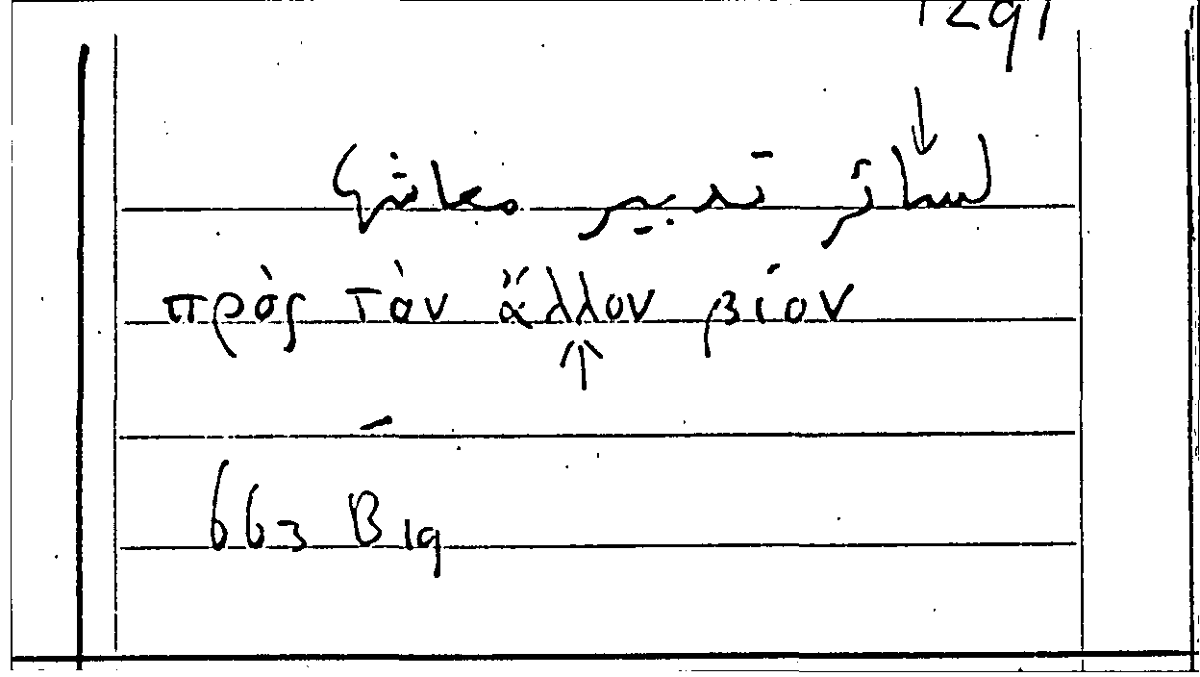 1291
لسائر تدبير معاشها
πρὸς τὸν ἄλλον βίον
663 B 19